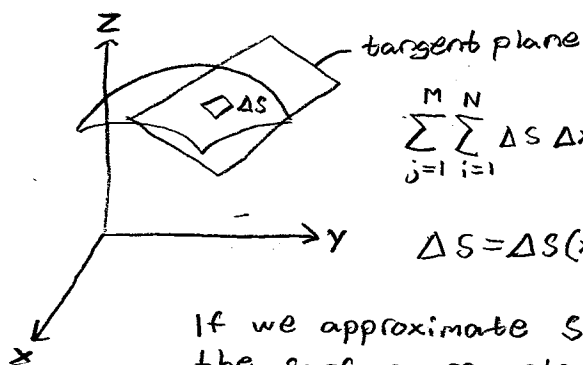 Z
tangent plane
ΔS
M N
∑ ∑ ΔS Δ
j=1 i=1
Y
ΔS = ΔS(
X
If we approximate S